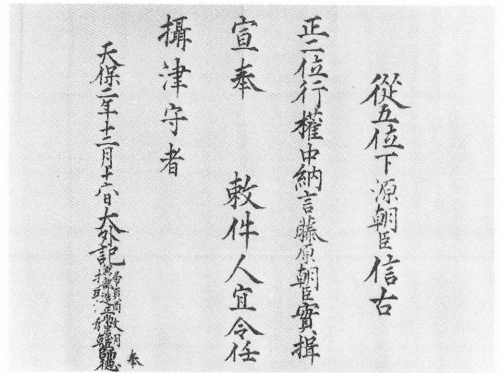 從五位下源朝臣信古
正二位行權中納言藤原朝臣實揖
宣奉　敕件人宜令任
攝津守者
天保二年十二月十六日大外記
奉